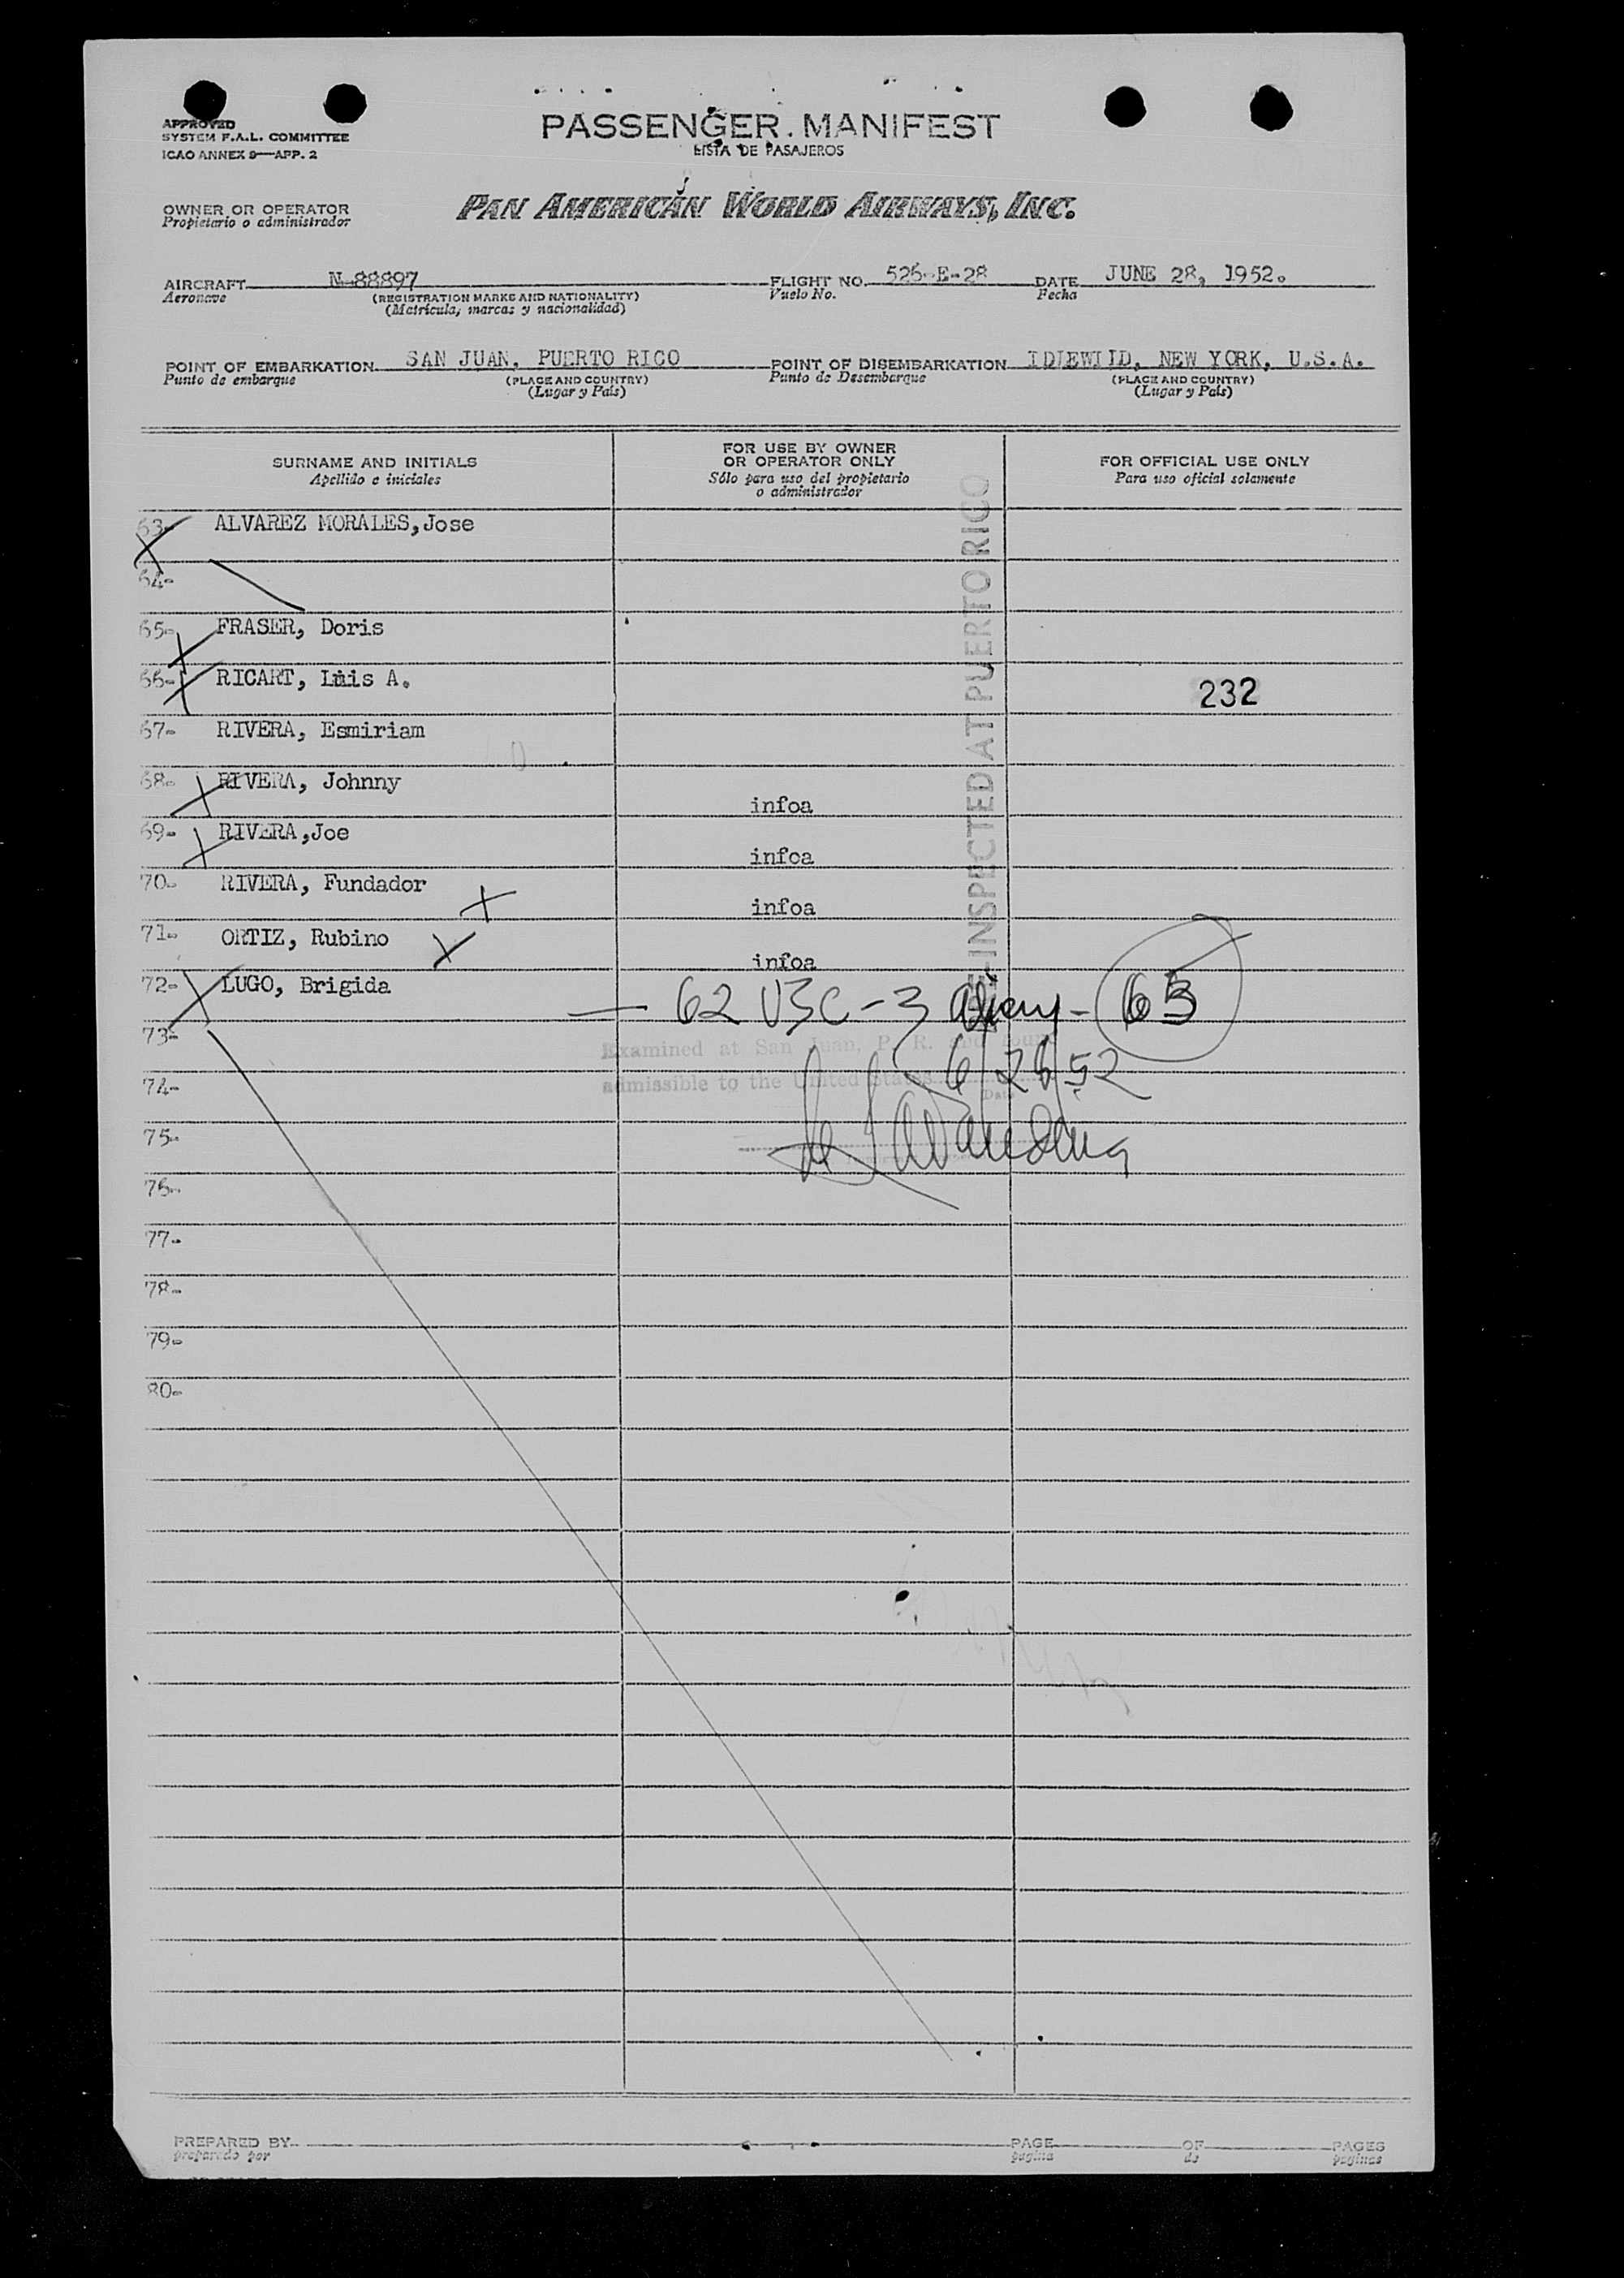 APPROVED
SYSTEM F.A.L. COMMITTEE
ICAO ANNEX 9—APP. 2
PASSENGER MANIFEST
LISTA DE PASAJEROS
OWNER OR OPERATOR
Propietario o administrador
PAN AMERICAN WORLD AIRWAYS, INC.
AIRCRAFT N-88897 FLIGHT NO. 526-E-28 DATE JUNE 28, 1952.
Aeronave (REGISTRATION MARKS AND NATIONALITY) Vuelo No. Fecha
(Matrícula, marcas y nacionalidad)
POINT OF EMBARKATION SAN JUAN, PUERTO RICO POINT OF DISEMBARKATION IDLEWILD, NEW YORK, U.S.A.
Punto de embarque (PLACE AND COUNTRY) Punto de Desembarque (PLACE AND COUNTRY)
(Lugar y País) (Lugar y País)
SURNAME AND INITIALS
Apellido e iniciales
FOR USE BY OWNER
OR OPERATOR ONLY
Sólo para uso del propietario
o administrador
FOR OFFICIAL USE ONLY
Para uso oficial solamente
63- ALVAREZ MORALES,Jose
64-
65- FRASER, Doris
66- RICART, Luis A.
232
67- RIVERA, Esmiriam
68- RIVERA, Johnny infoa
69- RIVERA,Joe infoa
70- RIVERA, Fundador infoa
71- ORTIZ, Rubino infoa
72- LUGO, Brigida
— 62 USC - 3 Alien - 65
73-
Examined at San Juan, P. R. and found
6/28/52
74-
admissible to the United States
Date
75-
76-
77-
78-
79-
80-
-INSPECTED AT PUERTO RICO
PREPARED BY PAGE OF PAGES
preparado por página de páginas